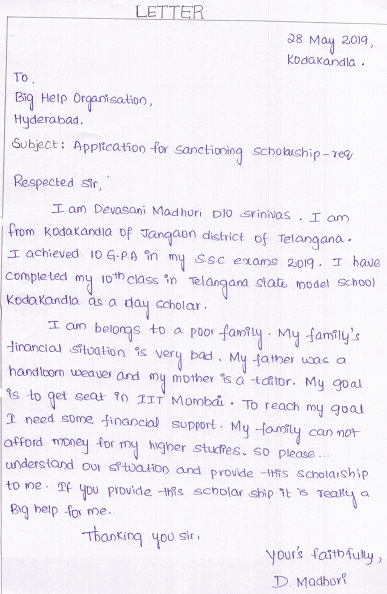 LETTER
28 May 2019,
Kodakandla.
To,
Big Help Organisation,
Hyderabad.
Subject: Application for sanctioning scholarship-req
Respected sir,
I am Devasani Madhuri D/O srinivas. I am
from Kodakandla of Jangaon district of Telangana.
I achieved 10 G.P.A in my S.S.C exams 2019. I have
completed my 10th class in Telangana state model school
Kodakandla as a day scholar.
I am belongs to a poor family. My family's
financial situation is very bad. My father was a
handloom weaver and my mother is a tailor. My goal
is to get seat in IIT Mombai. To reach my goal
I need some financial support. My family can not
afford money for my higher studies. so please...
understand our situation and provide this scholarship
to me. If you provide this scholar ship it is really a
Big help for me..
Thanking you sir,
Your's faithfully,
D. Madhuri